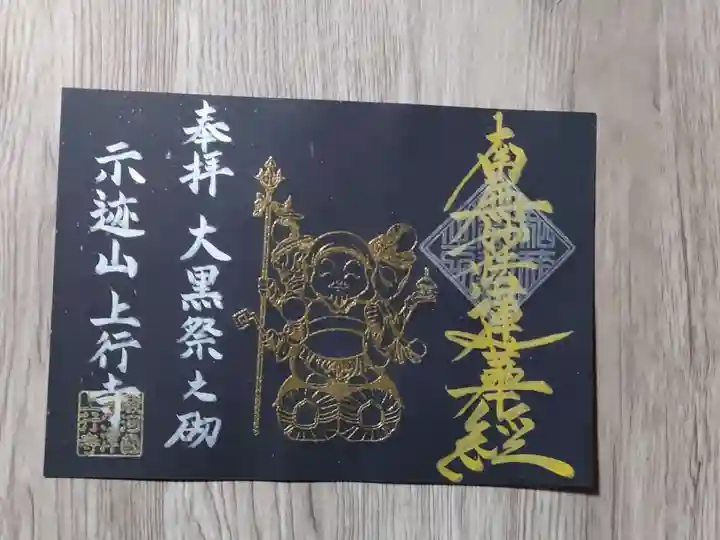 南無妙法蓮華経
奉拝 大黒祭之砌
示迹山上行寺